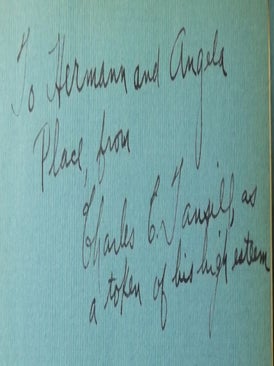 To Hermann and Angela
Place, from
Charles C. Tansill, as
a token of his high esteem